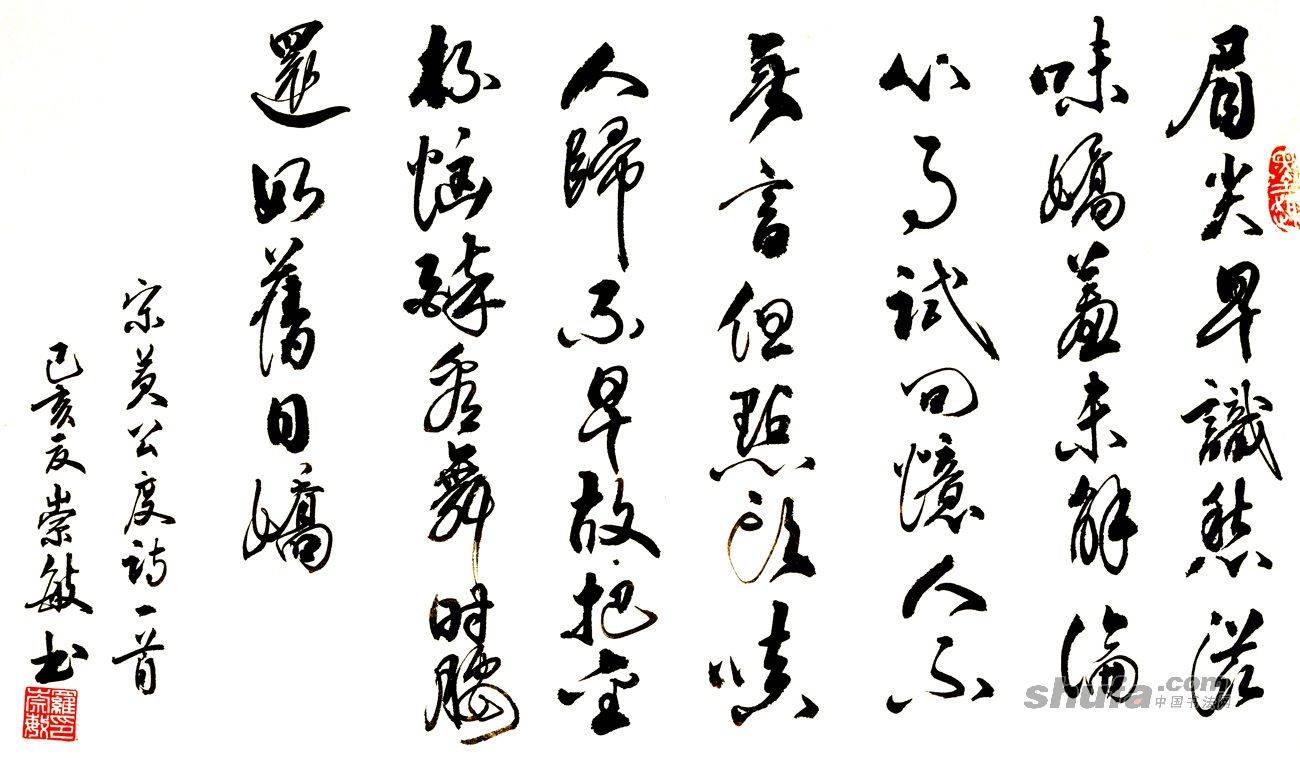 眉尖早識愁滋
味嬌羞未解論
心事試問憶人不
無言但點頭嗔
人歸不早故把金
杯惱醉看舞时腰
還如舊日嬌
宋黄公度诗一首
己亥夏崇敏书
羅崇敏印
shufa.com
中国书法网